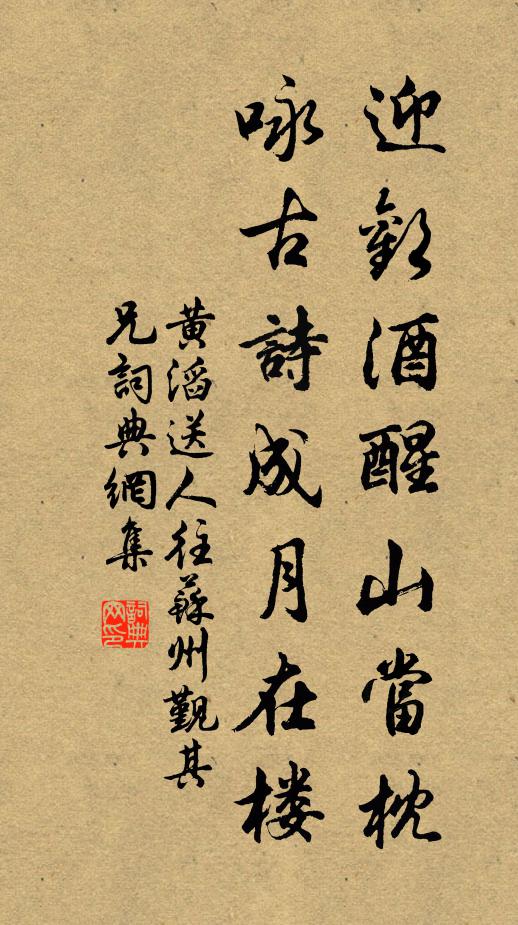 迎歡酒醒山當枕
咏古詩成月在楼
黃滔送人往蘇州觀其
兄詞典網集
詞典
网印